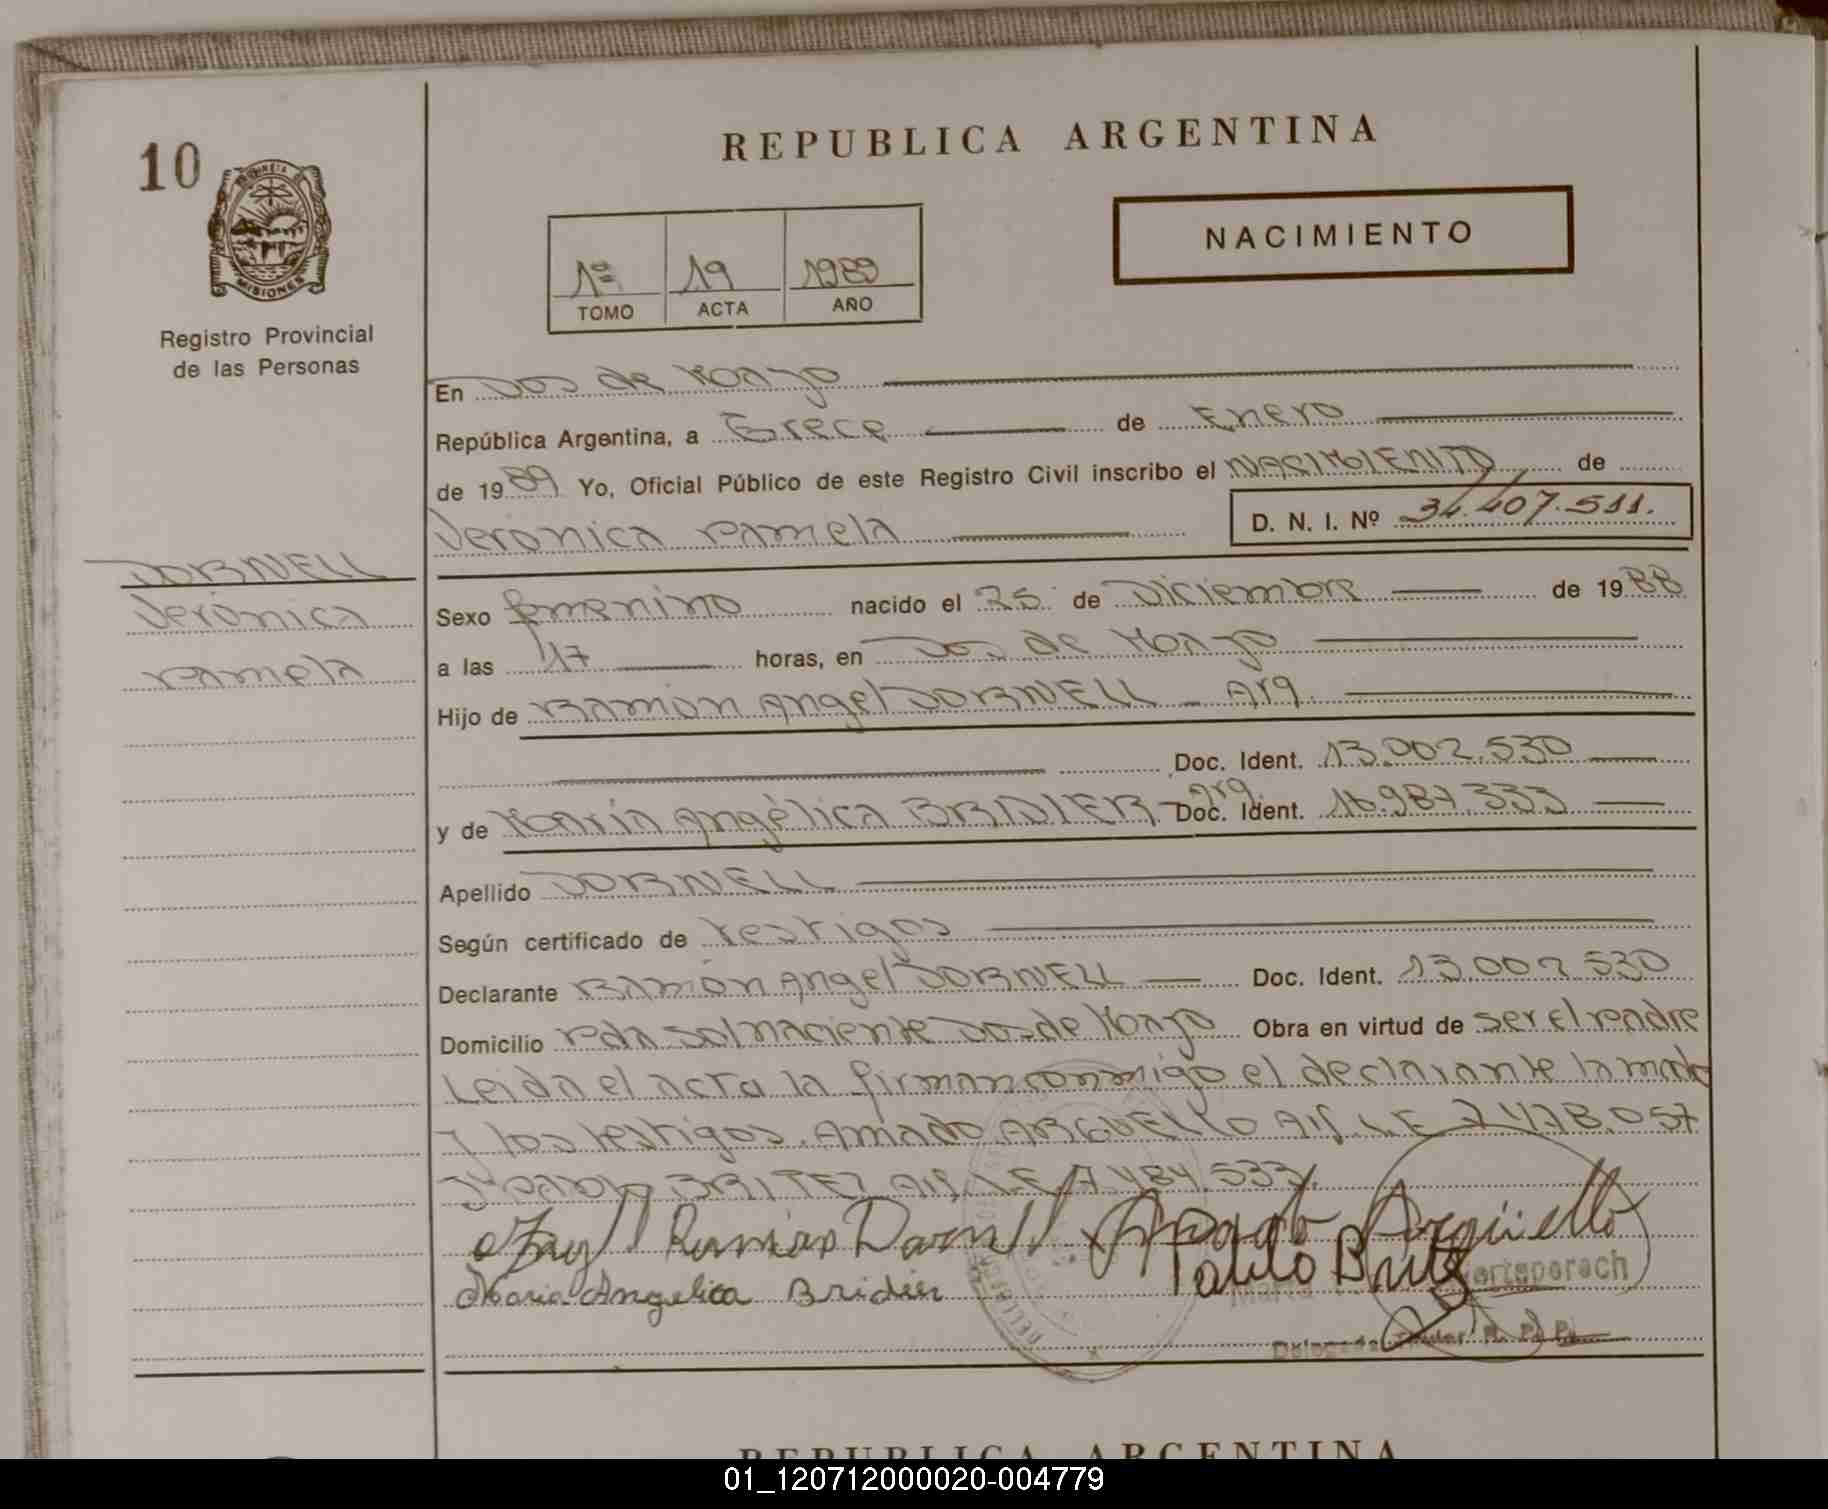 REPUBLICA ARGENTINA
10
PROVINCIA D
MISIONES
Registro Provincial
de las Personas
NACIMIENTO
1º 19 1989
TOMO ACTA AÑO
En Dos de Mayo
República Argentina, a Trece de Enero
de 1989 Yo, Oficial Público de este Registro Civil inscribo el NACIMIENTO de
Verónica Pamela D. N. I. Nº 34.407.511.
DORNELL
Verónica
Pamela
Sexo femenino nacido el 25 de Diciembre de 1988
a las 17 horas, en Dos de Mayo
Hijo de Ramón Angel DORNELL - Arg.
Doc. Ident. 13.002.530
y de María Angélica BRIDIER - Arg. Doc. Ident. 16.987.333
Apellido DORNELL
Según certificado de testigos
Declarante Ramón Angel DORNELL Doc. Ident. 13.002.530
Domicilio Pda Sol naciente Dos de Mayo Obra en virtud de ser el padre
Leida el acta la firman conmigo el declarante la madre
y los testigos. Amado ARGUELLO Arg. L.E 7.478.057
y Pablo BRITEZ Arg. L.E 7.484.533.
Ramón Dornell Amado Argüello
Maria Angelica Bridier Pablo Britez
Delegada Titular R. P. P.
REPUBLICA ARGENTINA
01_120712000020-004779